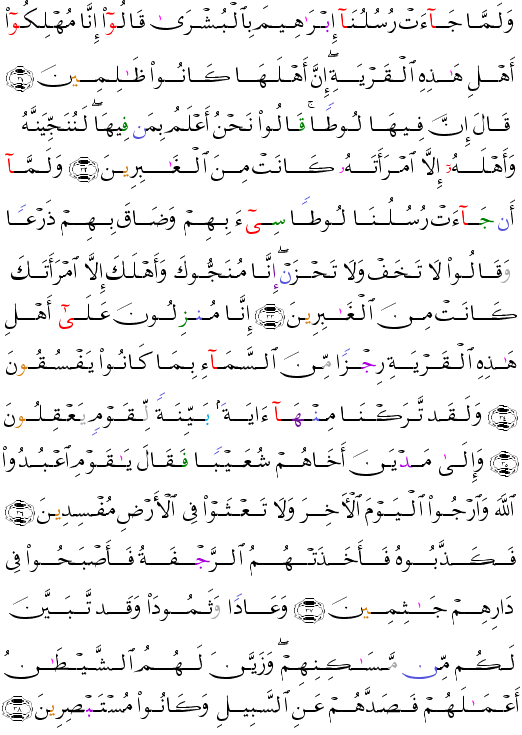 وَلَمَّا جَآءَتْ رُسُلُنَآ إِبْرَٰهِيمَ بِٱلْبُشْرَىٰ قَالُوٓا۟ إِنَّا مُهْلِكُوٓا۟
أَهْلِ هَٰذِهِ ٱلْقَرْيَةِ ۖ إِنَّ أَهْلَهَا كَانُوا۟ ظَٰلِمِينَ ﴿٣١﴾
قَالَ إِنَّ فِيهَا لُوطًا ۚ قَالُوا۟ نَحْنُ أَعْلَمُ بِمَن فِيهَا ۖ لَنُنَجِّيَنَّهُۥ
وَأَهْلَهُۥٓ إِلَّا ٱمْرَأَتَهُۥ كَانَتْ مِنَ ٱلْغَٰبِرِينَ ﴿٣٢﴾ وَلَمَّآ
أَن جَآءَتْ رُسُلُنَا لُوطًا سِىٓءَ بِهِمْ وَضَاقَ بِهِمْ ذَرْعًا
وَقَالُوا۟ لَا تَخَفْ وَلَا تَحْزَنْ ۖ إِنَّا مُنَجُّوكَ وَأَهْلَكَ إِلَّا ٱمْرَأَتَكَ
كَانَتْ مِنَ ٱلْغَٰبِرِينَ ﴿٣٣﴾ إِنَّا مُنزِلُونَ عَلَىٰٓ أَهْلِ
هَٰذِهِ ٱلْقَرْيَةِ رِجْزًا مِّنَ ٱلسَّمَآءِ بِمَا كَانُوا۟ يَفْسُقُونَ
﴿٣٤﴾ وَلَقَد تَّرَكْنَا مِنْهَآ ءَايَةًۢ بَيِّنَةً لِّقَوْمٍ يَعْقِلُونَ
﴿٣٥﴾ وَإِلَىٰ مَدْيَنَ أَخَاهُمْ شُعَيْبًا فَقَالَ يَٰقَوْمِ ٱعْبُدُوا۟
ٱللَّهَ وَٱرْجُوا۟ ٱلْيَوْمَ ٱلْءَاخِرَ وَلَا تَعْثَوْا۟ فِى ٱلْأَرْضِ مُفْسِدِينَ ﴿٣٦﴾
فَكَذَّبُوهُ فَأَخَذَتْهُمُ ٱلرَّجْفَةُ فَأَصْبَحُوا۟ فِى
دَارِهِمْ جَٰثِمِينَ ﴿٣٧﴾ وَعَادًا وَثَمُودَا۟ وَقَد تَّبَيَّنَ
لَكُم مِّن مَّسَٰكِنِهِمْ ۖ وَزَيَّنَ لَهُمُ ٱلشَّيْطَٰنُ
أَعْمَٰلَهُمْ فَصَدَّهُمْ عَنِ ٱلسَّبِيلِ وَكَانُوا۟ مُسْتَبْصِرِينَ ﴿٣٨﴾